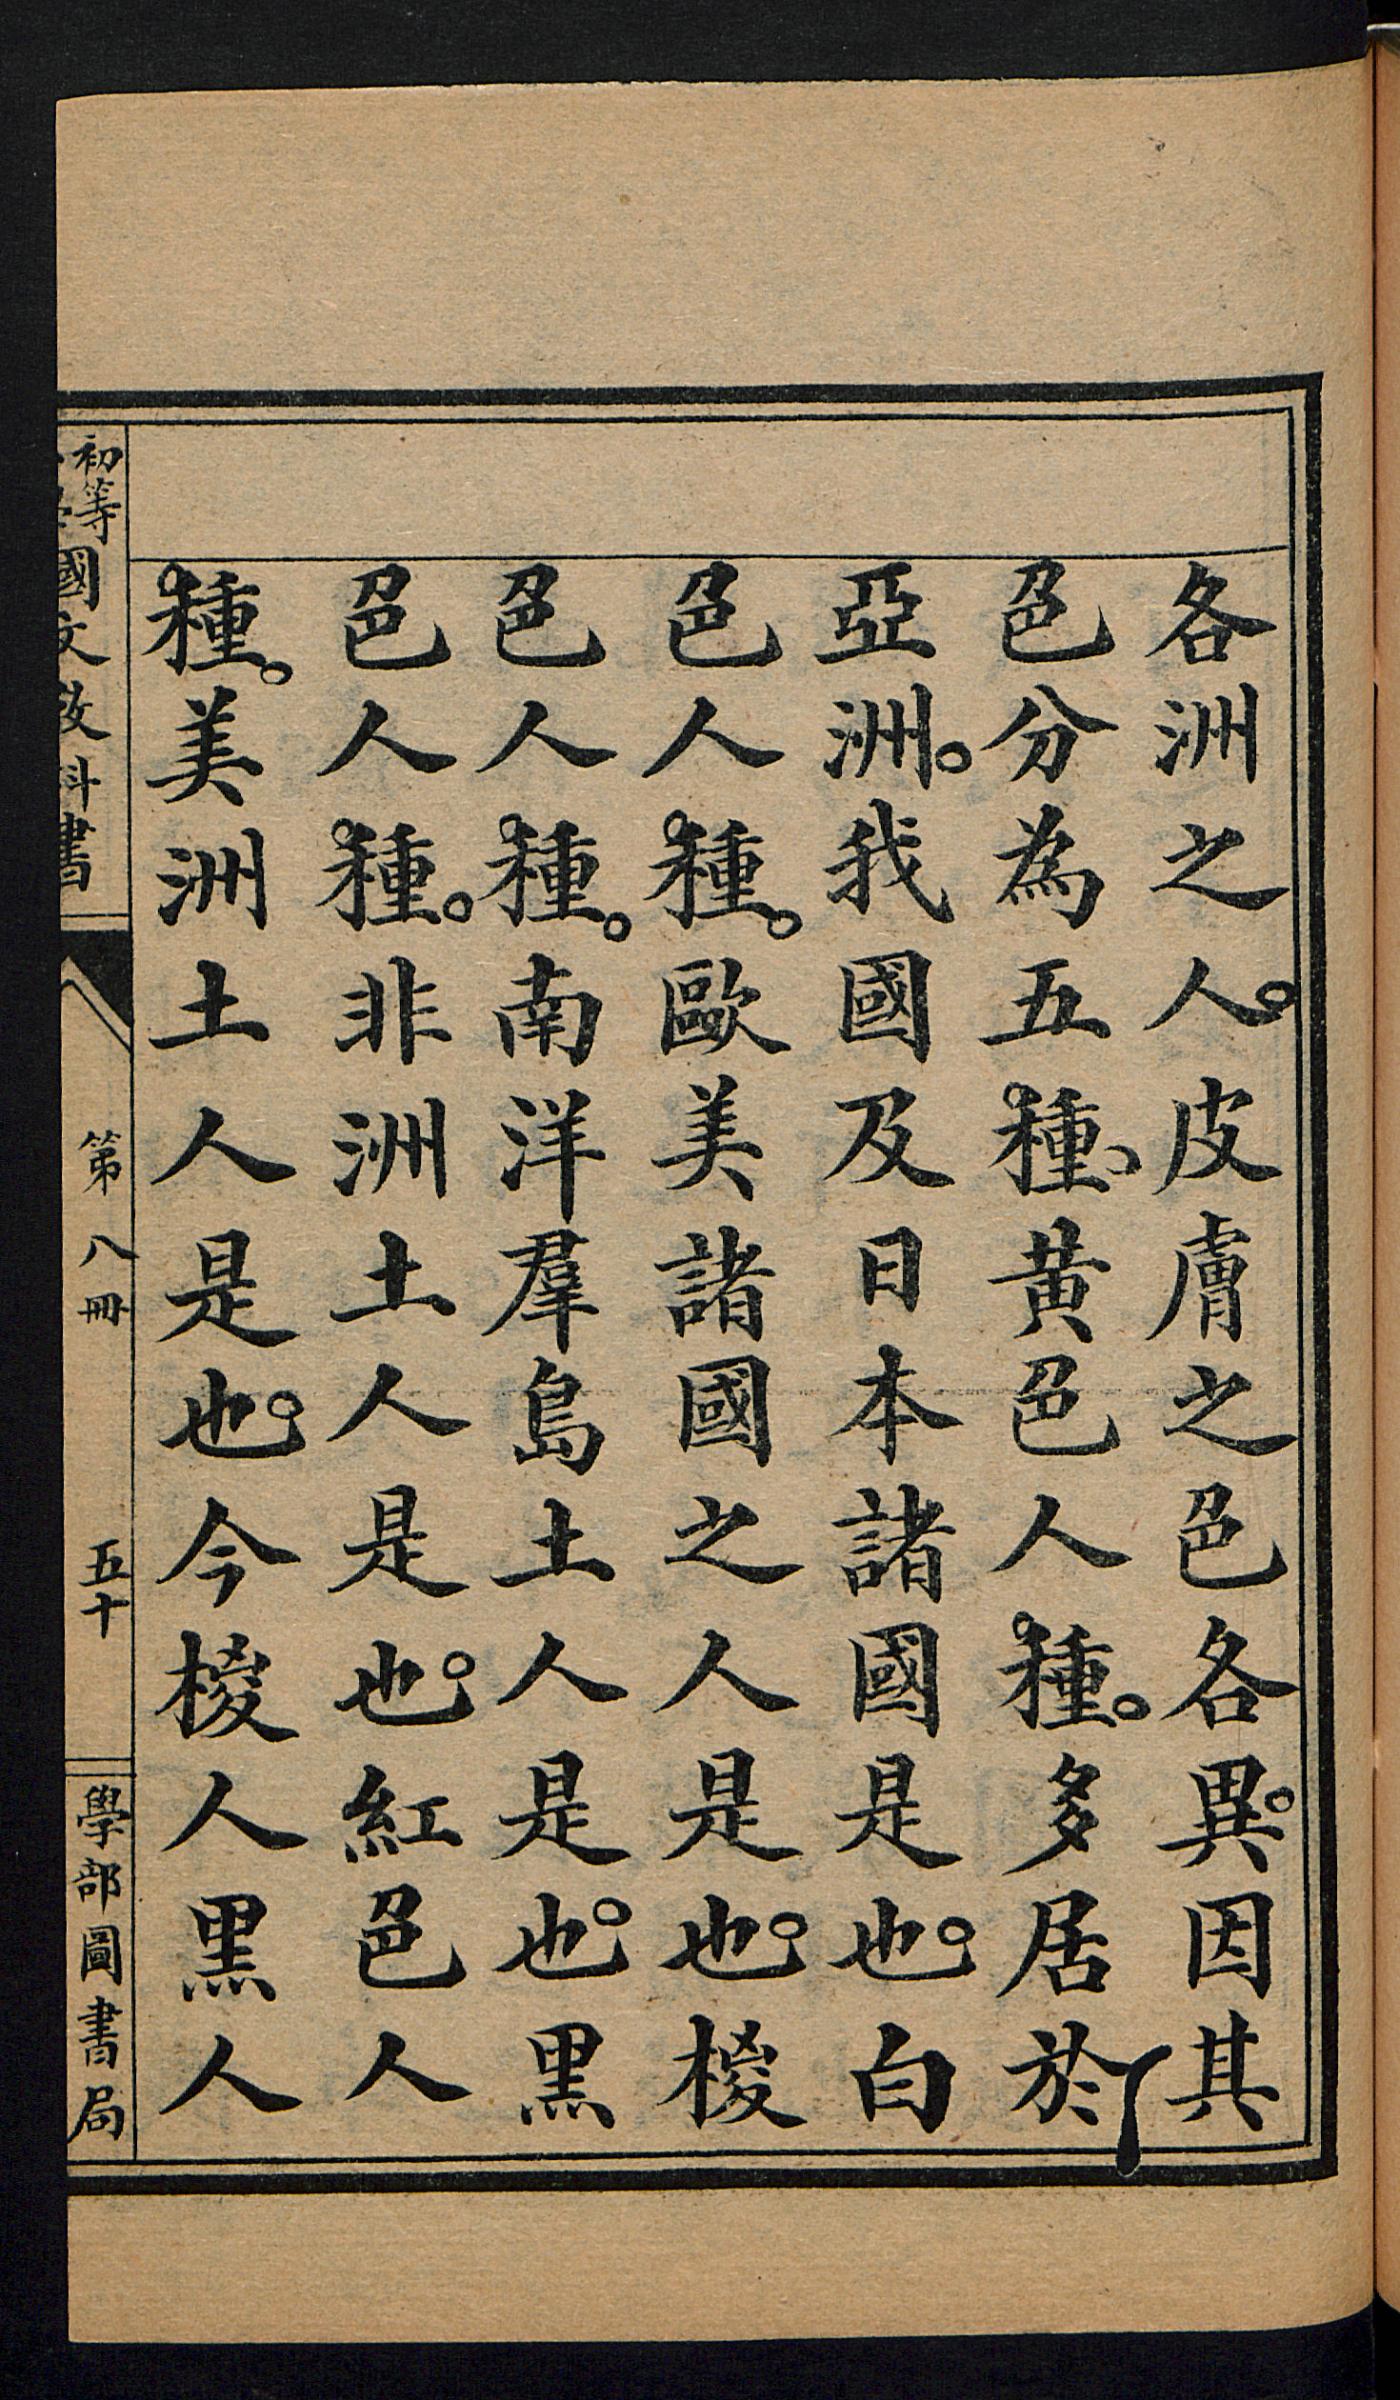 各洲之人。皮膚之色各異。因其
色分為五種、黃色人種。多居於
亞洲。我國及日本諸國是也。白
色人種。歐美諸國之人是也。椶
色人種。南洋羣島土人是也。黑
色人種。非洲土人是也。紅色人
種。美洲土人是也。今椶人黑人
初等小學國文教科書
第八冊
五十
學部圖書局